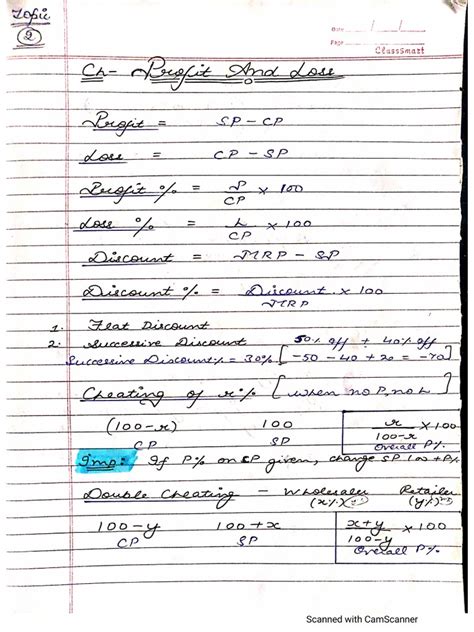 Topic
2
Date / /
Page
Classmart
Ch- Profit And Loss
Profit = SP - CP
Loss = CP - SP
Profit % = P/CP × 100
Loss % = L/CP × 100
Discount = MRP - SP
Discount % = Discount/MRP × 100
1. Flat Discount
2. Successive Discount 50% off + 40% off
Successive Discount % = 30% [-50 - 40 + 20 = -70]
Cheating of x% [when no P, no L]
(100-x) 100 x/100-x × 100
CP SP Overall P%
Imp: If P% on CP given, change SP 100 + P%
Double Cheating - Wholesaler Retailer
(x%) (y%)
100-y 100+x x+y/100-y × 100
CP SP Overall P%
Scanned with CamScanner